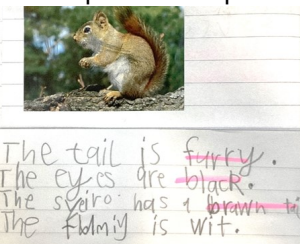 The tail is furry.
The eyes are black.
The sqeiro has a brawn tai
The is wit.